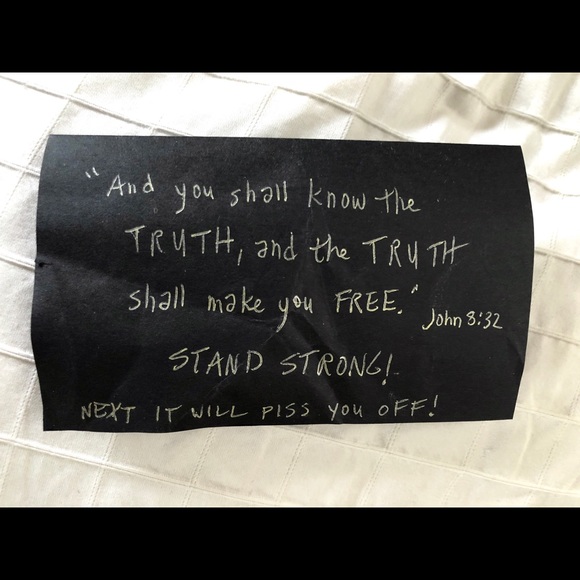 "And you shall know the
TRUTH, and the TRUTH
shall make you FREE."
John 8:32
STAND STRONG!
NEXT IT WILL PISS YOU OFF!